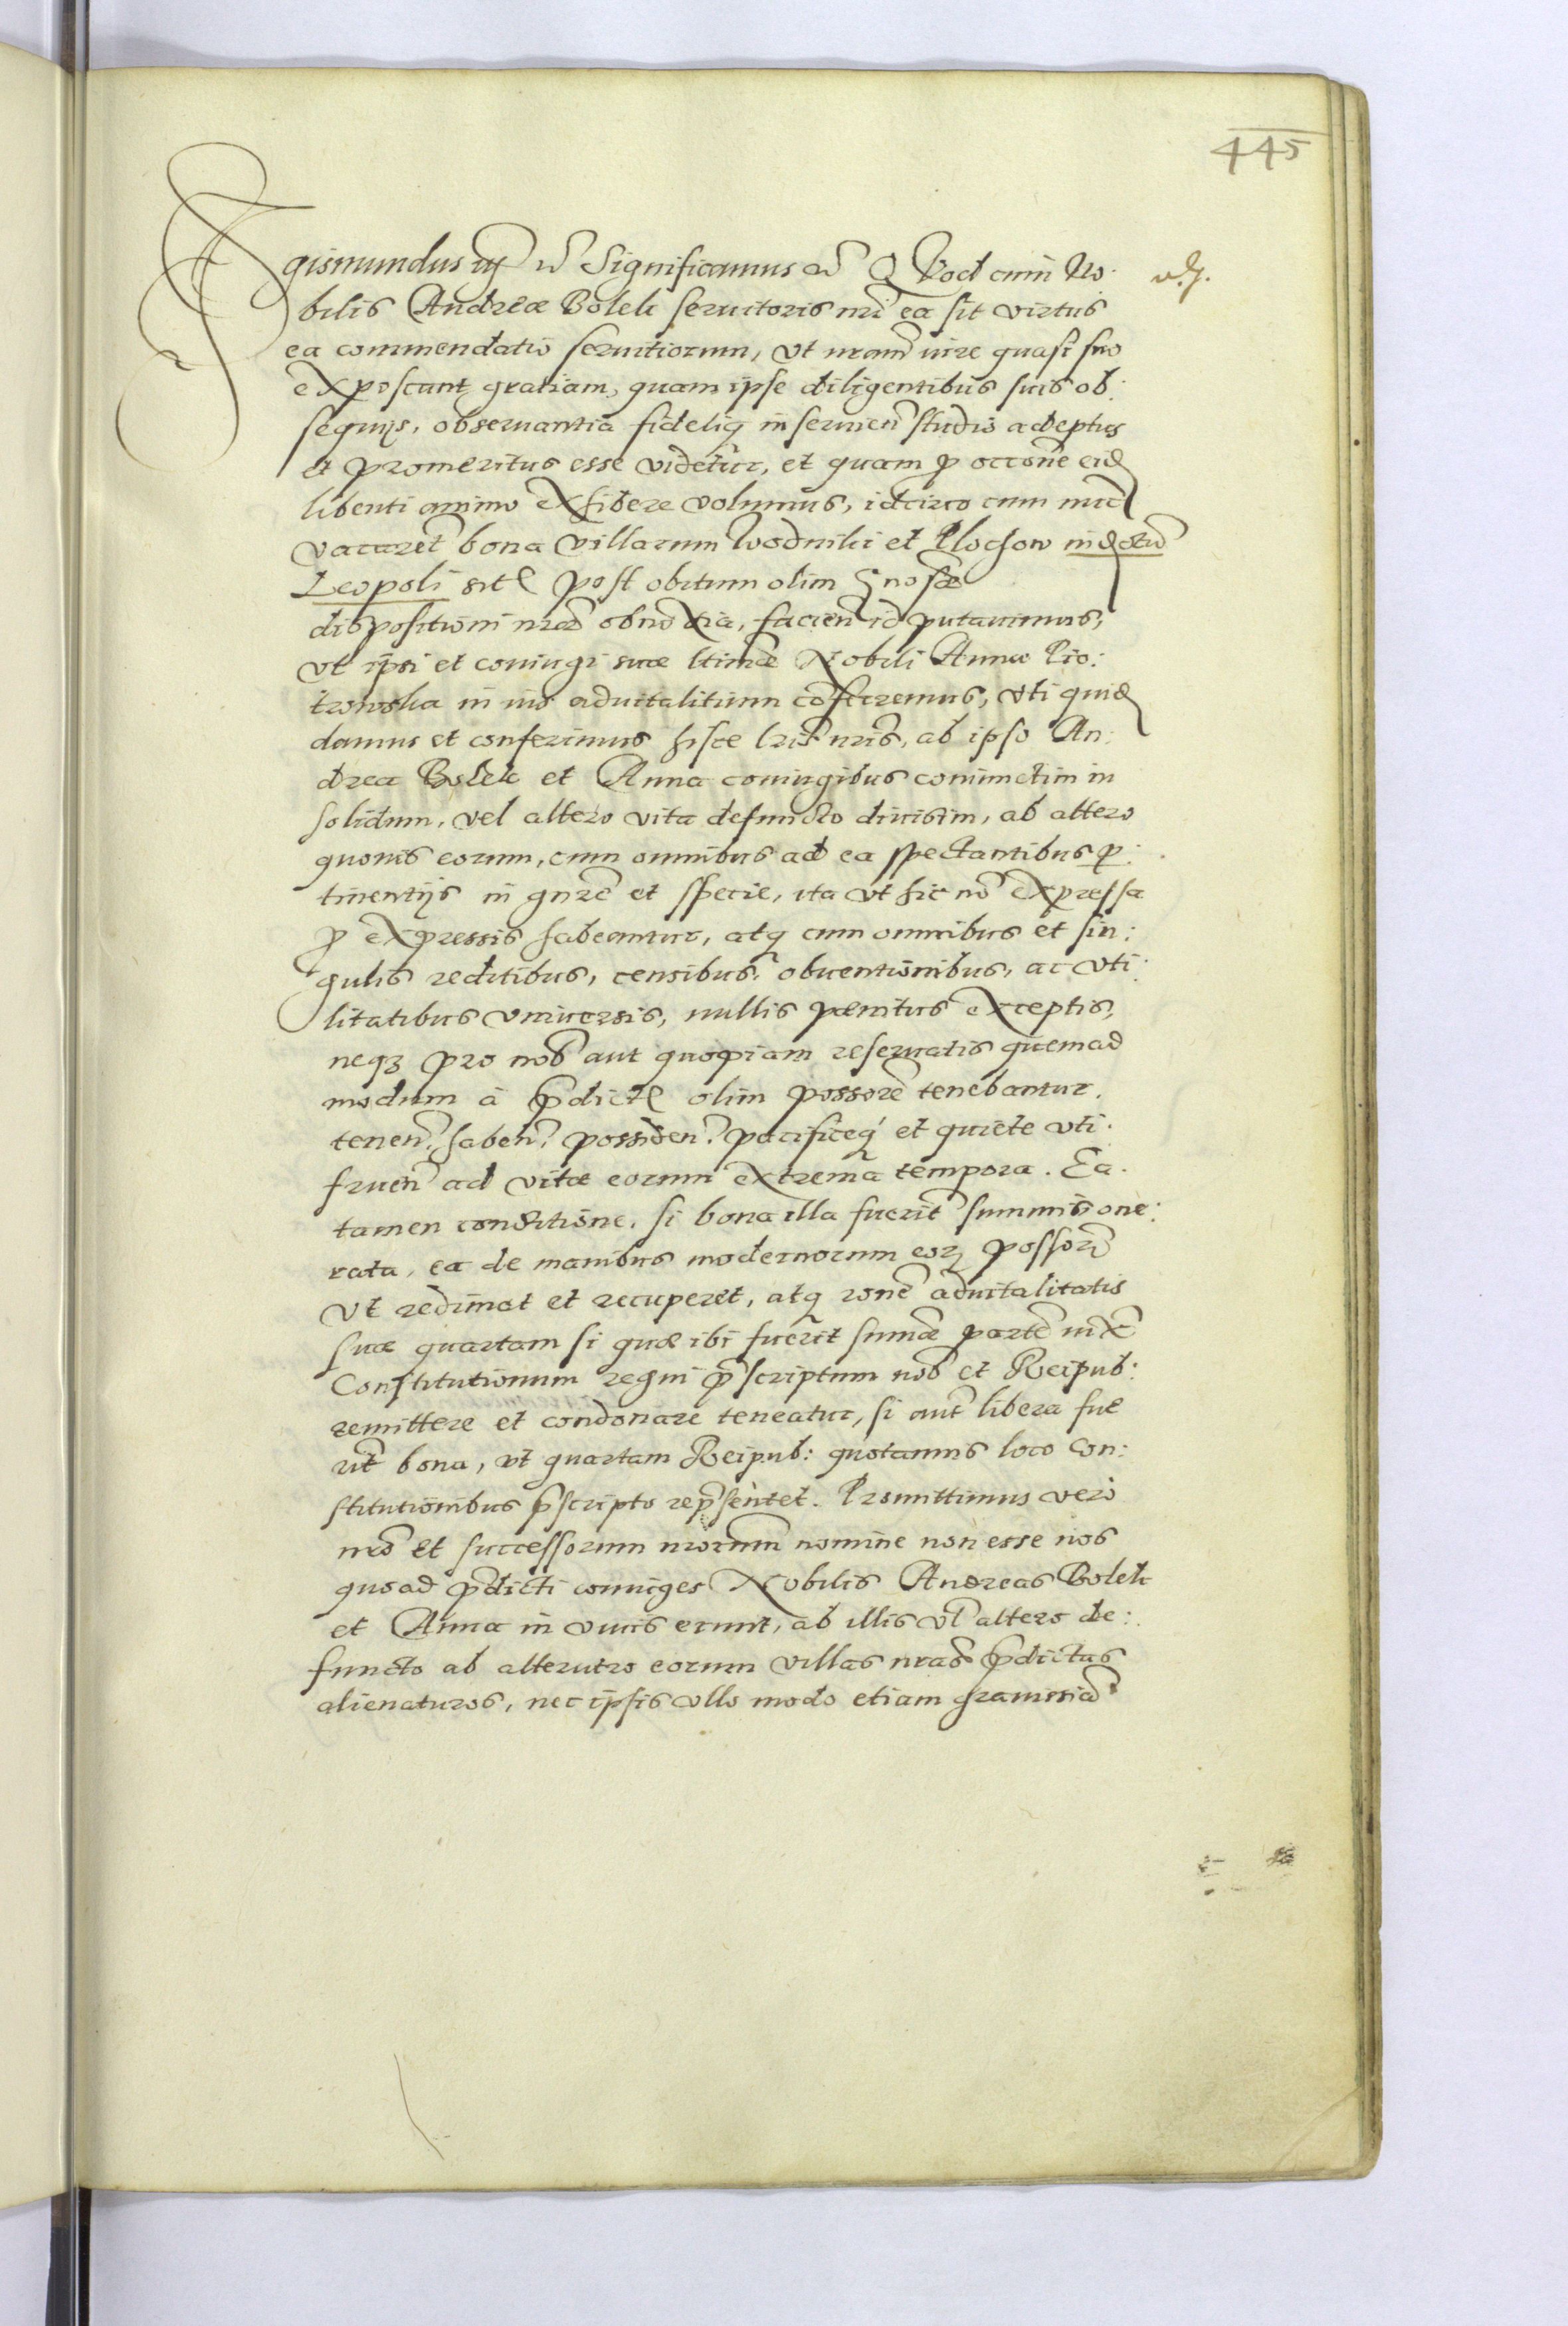 445
Sigismundus iij etc Significamus etc Quod cum No:
bilis Andreæ Bolek seruitoris nri ea sit virtus
ea commendatio seruitiorum, vt nram iure quasi suo
exposcant gratiam, quam ipse diligentibus suis ob:
sequijs, obseruantia fideliq inseruien studio adeptus
et promeritus esse videtur, et quam p occone eid
libenti animo exhibere volumus, idcirco cum nuc
vacaret bona villarum Wodniki et Plochow in dotu
Leopoli sit post obitum olim Gnosæ
dispositioni nræ obnoxia, facien id putauimus,
vt ipsi et coniugi suæ ltimæ Nobili Annæ Pio:
trowska in ius aduitalitium coferremus, vti quid
damus et conferimus hisce lris nris, ab ipso An:
drea Bolek et Anna coniugibus coniunctim in
solidum, vel altero vita defuncto diuisim, ab altero
quouis eorum, cum omnibus ad ea spectantibus p:
tinentijs in gnre et specie, ita vt hic no expressa
p expressis habeantur, atq cum omnibus et sin:
gulis reditibus, censibus, obuentionibus, ac vti:
litatibus vniuersis, nullis pænitus exceptis,
neq pro nob aut quopiam reseruatis quemad
modum à pdict olim possore tenebantur.
tenen, haben, possiden, pacificeq et quiete vti:
fruen ad vitæ eorum extrema tempora. Ea
tamen conditione, si bona illa fuerit summis one:
rata, ea de manibus modernorum eor possor
vt redimat et recuperet, atq rone aduitalitatis
suæ quartam si quæ ibi fuerit sumæ parte iux
Constitutionum regni pscriptum nob et Reipub:
remittere et condonare teneatur, si aut libera fue
rit bona, vt quartam Reipub: quotannis loco Con:
stitutionibus pscripto repsentet. Promittimus vero
nro et successorum nrorum nomine non esse nos
quoad pdicti coniuges Nobilis Andreas Bolek
et Anna in viuis erunt, ab illis vl altero de:
functo ab alterutro eorum villas nras pdictas
alienaturos, nec ipsis vllo modo etiam